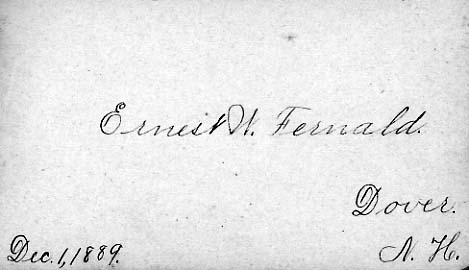 Ernest W. Fernald.
Dover.
Dec. 1, 1889. N. H.